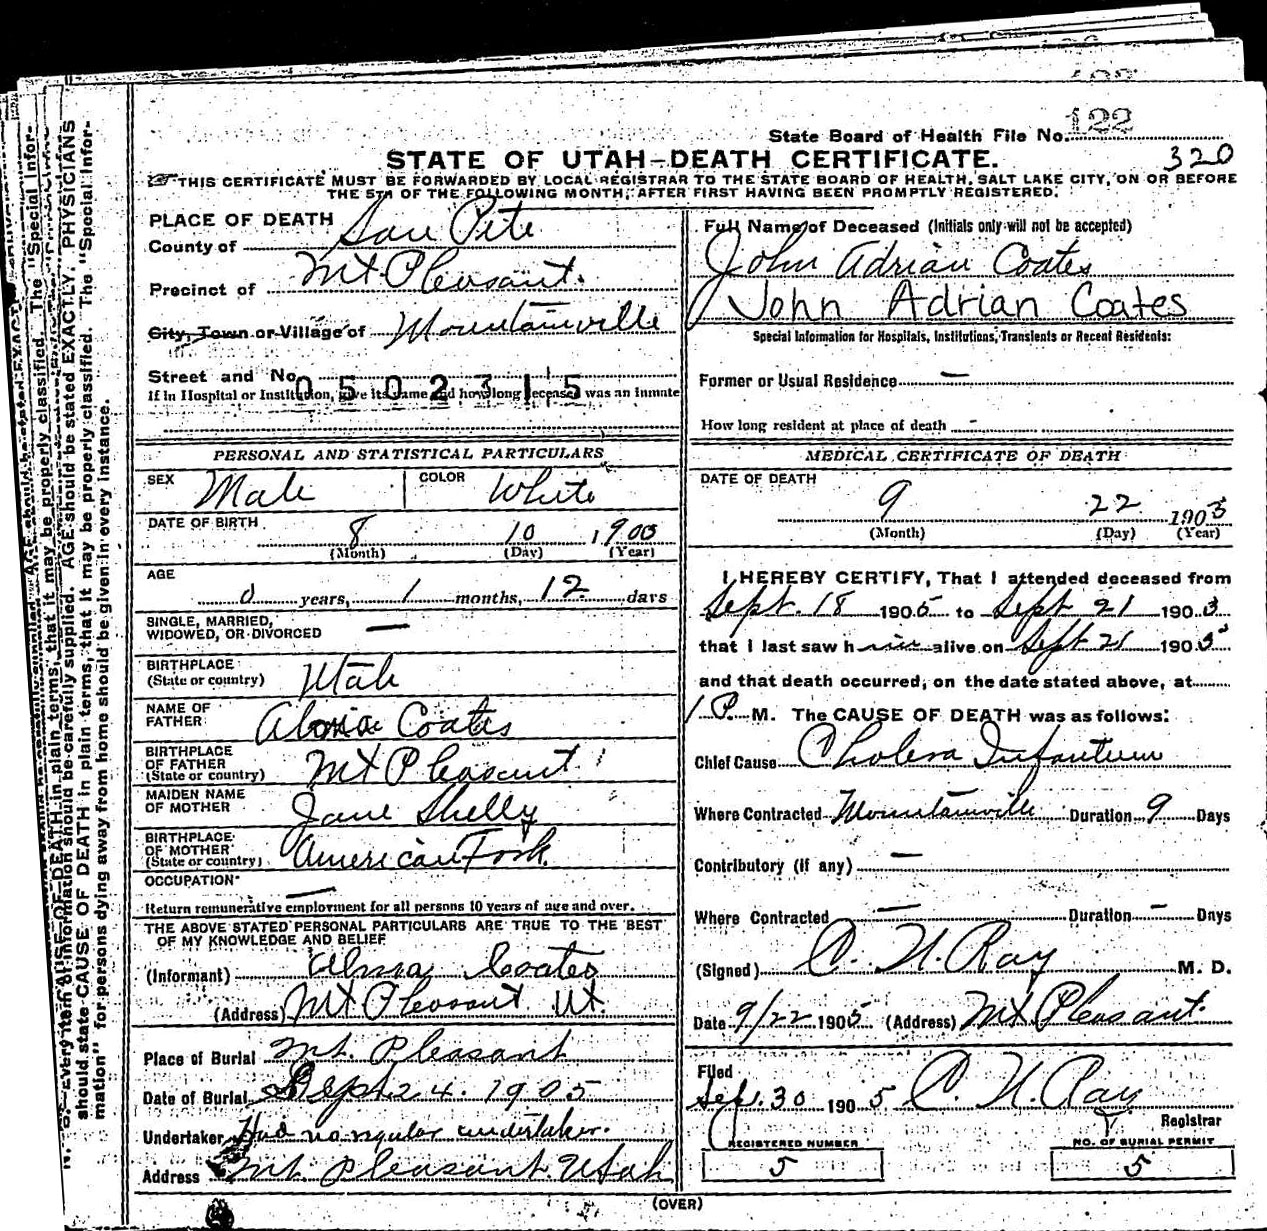 122
State Board of Health File No. 122
320
STATE OF UTAH-DEATH CERTIFICATE.
THIS CERTIFICATE MUST BE FORWARDED BY LOCAL REGISTRAR TO THE STATE BOARD OF HEALTH, SALT LAKE CITY, ON OR BEFORE
THE 5TH OF THE FOLLOWING MONTH, AFTER FIRST HAVING BEEN PROMPTLY REGISTERED.
PLACE OF DEATH
County of San Pete
Precinct of Mt Pleasant.
City, Town or Village of Mountainville
Street and No.
0502315
If in Hospital or Institution, give its name and how long deceased was an inmate
PERSONAL AND STATISTICAL PARTICULARS
SEX Male COLOR White
DATE OF BIRTH 8 10 1905
(Month) (Day) (Year)
AGE
0 years, 1 months, 12 days
SINGLE, MARRIED,
WIDOWED, OR DIVORCED —
BIRTHPLACE
(State or country) Utah
NAME OF
FATHER Coates
BIRTHPLACE
OF FATHER
(State or country) Mt Pleasant
MAIDEN NAME
OF MOTHER Jane Shelly
BIRTHPLACE
OF MOTHER
(State or country) American Fork
OCCUPATION —
Return remunerative employment for all persons 10 years of age and over.
THE ABOVE STATED PERSONAL PARTICULARS ARE TRUE TO THE BEST
OF MY KNOWLEDGE AND BELIEF
(Informant) Alma Coates
(Address) Mt Pleasant Ut.
Place of Burial Mt. Pleasant
Date of Burial Sept 24. 1905
Undertaker Had no regular undertaker.
Address Mt. Pleasant Utah
Full Name of Deceased (Initials only will not be accepted)
John Adrian Coates
John Adrian Coates
Special Information for Hospitals, Institutions, Transients or Recent Residents:
Former or Usual Residence —
How long resident at place of death -
MEDICAL CERTIFICATE OF DEATH
DATE OF DEATH
9 22 1905
(Month) (Day) (Year)
I HEREBY CERTIFY, That I attended deceased from
Sept. 18 1905 to Sept 21 1905
that I last saw him alive on Sept 21 1905
and that death occurred, on the date stated above, at
1 P. M. The CAUSE OF DEATH was as follows:
Chief Cause Cholera Infantum
Where Contracted Mountainville Duration 9 Days
Contributory (if any) —
Where Contracted — Duration — Days
(Signed) M. D.
Date 9/22 1905 (Address) Mt Pleasant.
Filed
Sep. 30 1905
Registrar
REGISTERED NUMBER
5
NO. OF BURIAL PERMIT
5
(OVER)
should state CAUSE OF DEATH in plain terms, that it may be properly classified. The "Special Infor-
mation" for persons dying away from home should be given in every instance.